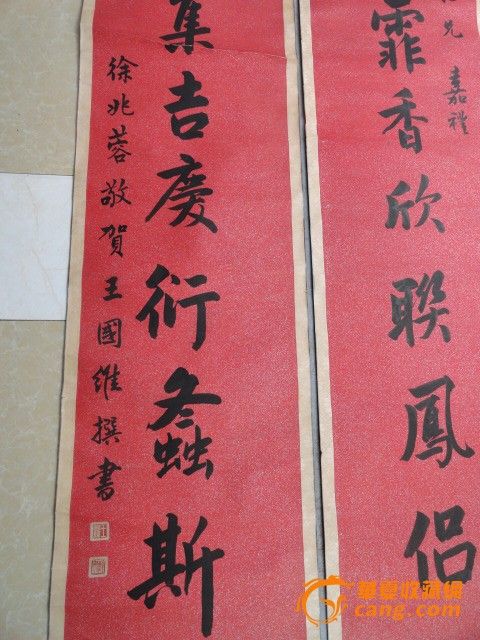 兄 嘉禮
霏香欣聯鳳侶
集吉慶衍螽斯
徐兆蓉敬賀王國維撰書
華夏收藏網
cang.com